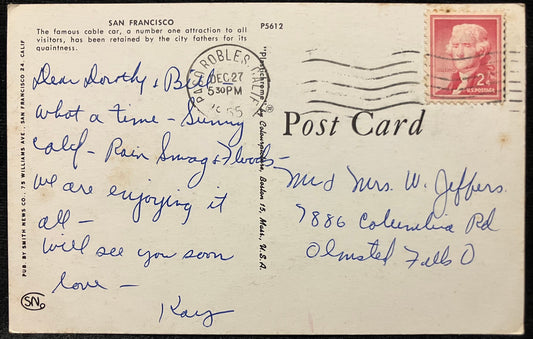 SAN FRANCISCO
The famous cable car, a number one attraction to all
visitors, has been retained by the city fathers for its
quaintness.
P5612
PASO ROBLES, CALIF.
DEC 27
5 30 PM
1955
2¢
U.S. POSTAGE
Post Card
Dear Dorothy & Bill
What a time - Sunny
Calif - Rain Smog & Floods -
we are enjoying it
all -
Will see you soon
love -
Kay
Mr & Mrs. W. Jeffers.
7886 Columbia Rd
Olmsted Falls O
PUB. BY SMITH NEWS CO., 75 WILLIAMS AVE., SAN FRANCISCO 24, CALIF
"Plastichrome" ® by Colourpicture, Boston 15, Mass., U.S.A.
SN